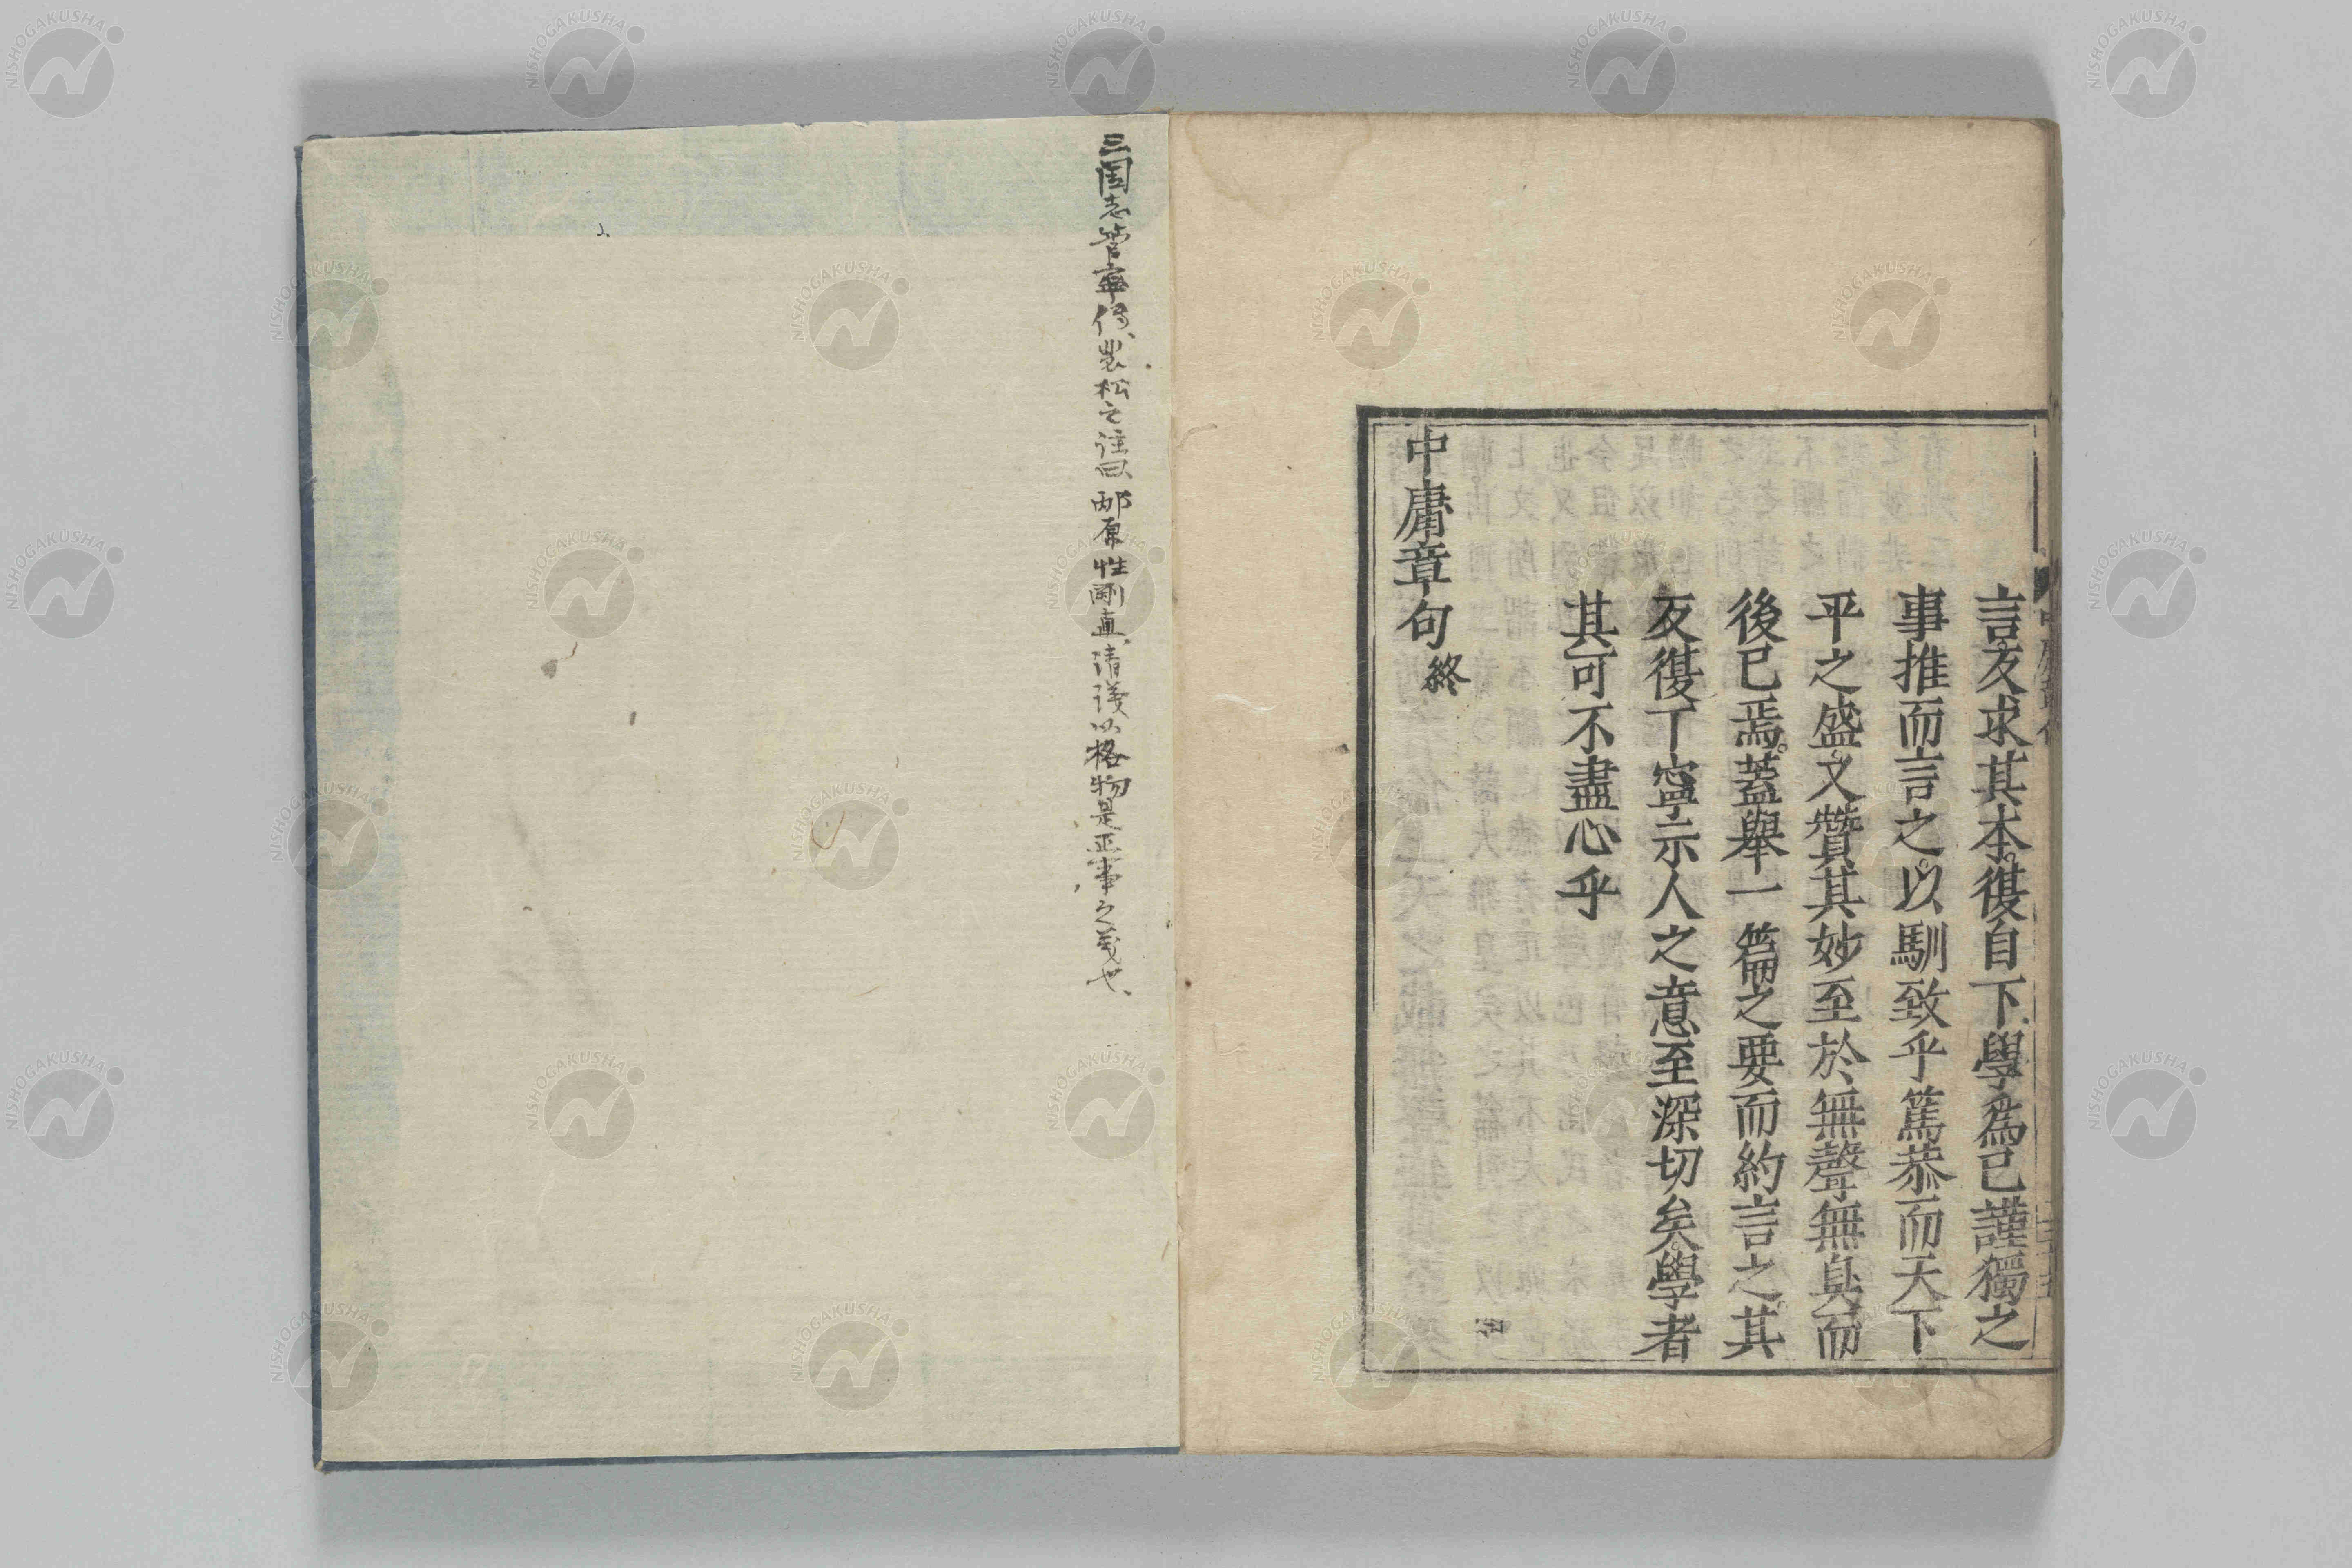 言反求其本復自下學爲己謹獨之
事推而言之以馴致乎篤恭而天下
平之盛又贊其妙至於無聲無臭而
後已焉蓋舉一篇之要而約言之其
反復丁寧示人之意至深切矣學者
其可不盡心乎
中庸章句終
三國志管寧傳、裴松之注曰邴原性剛直、清議以格物是正事之義也、
NISHOGAKUSHA